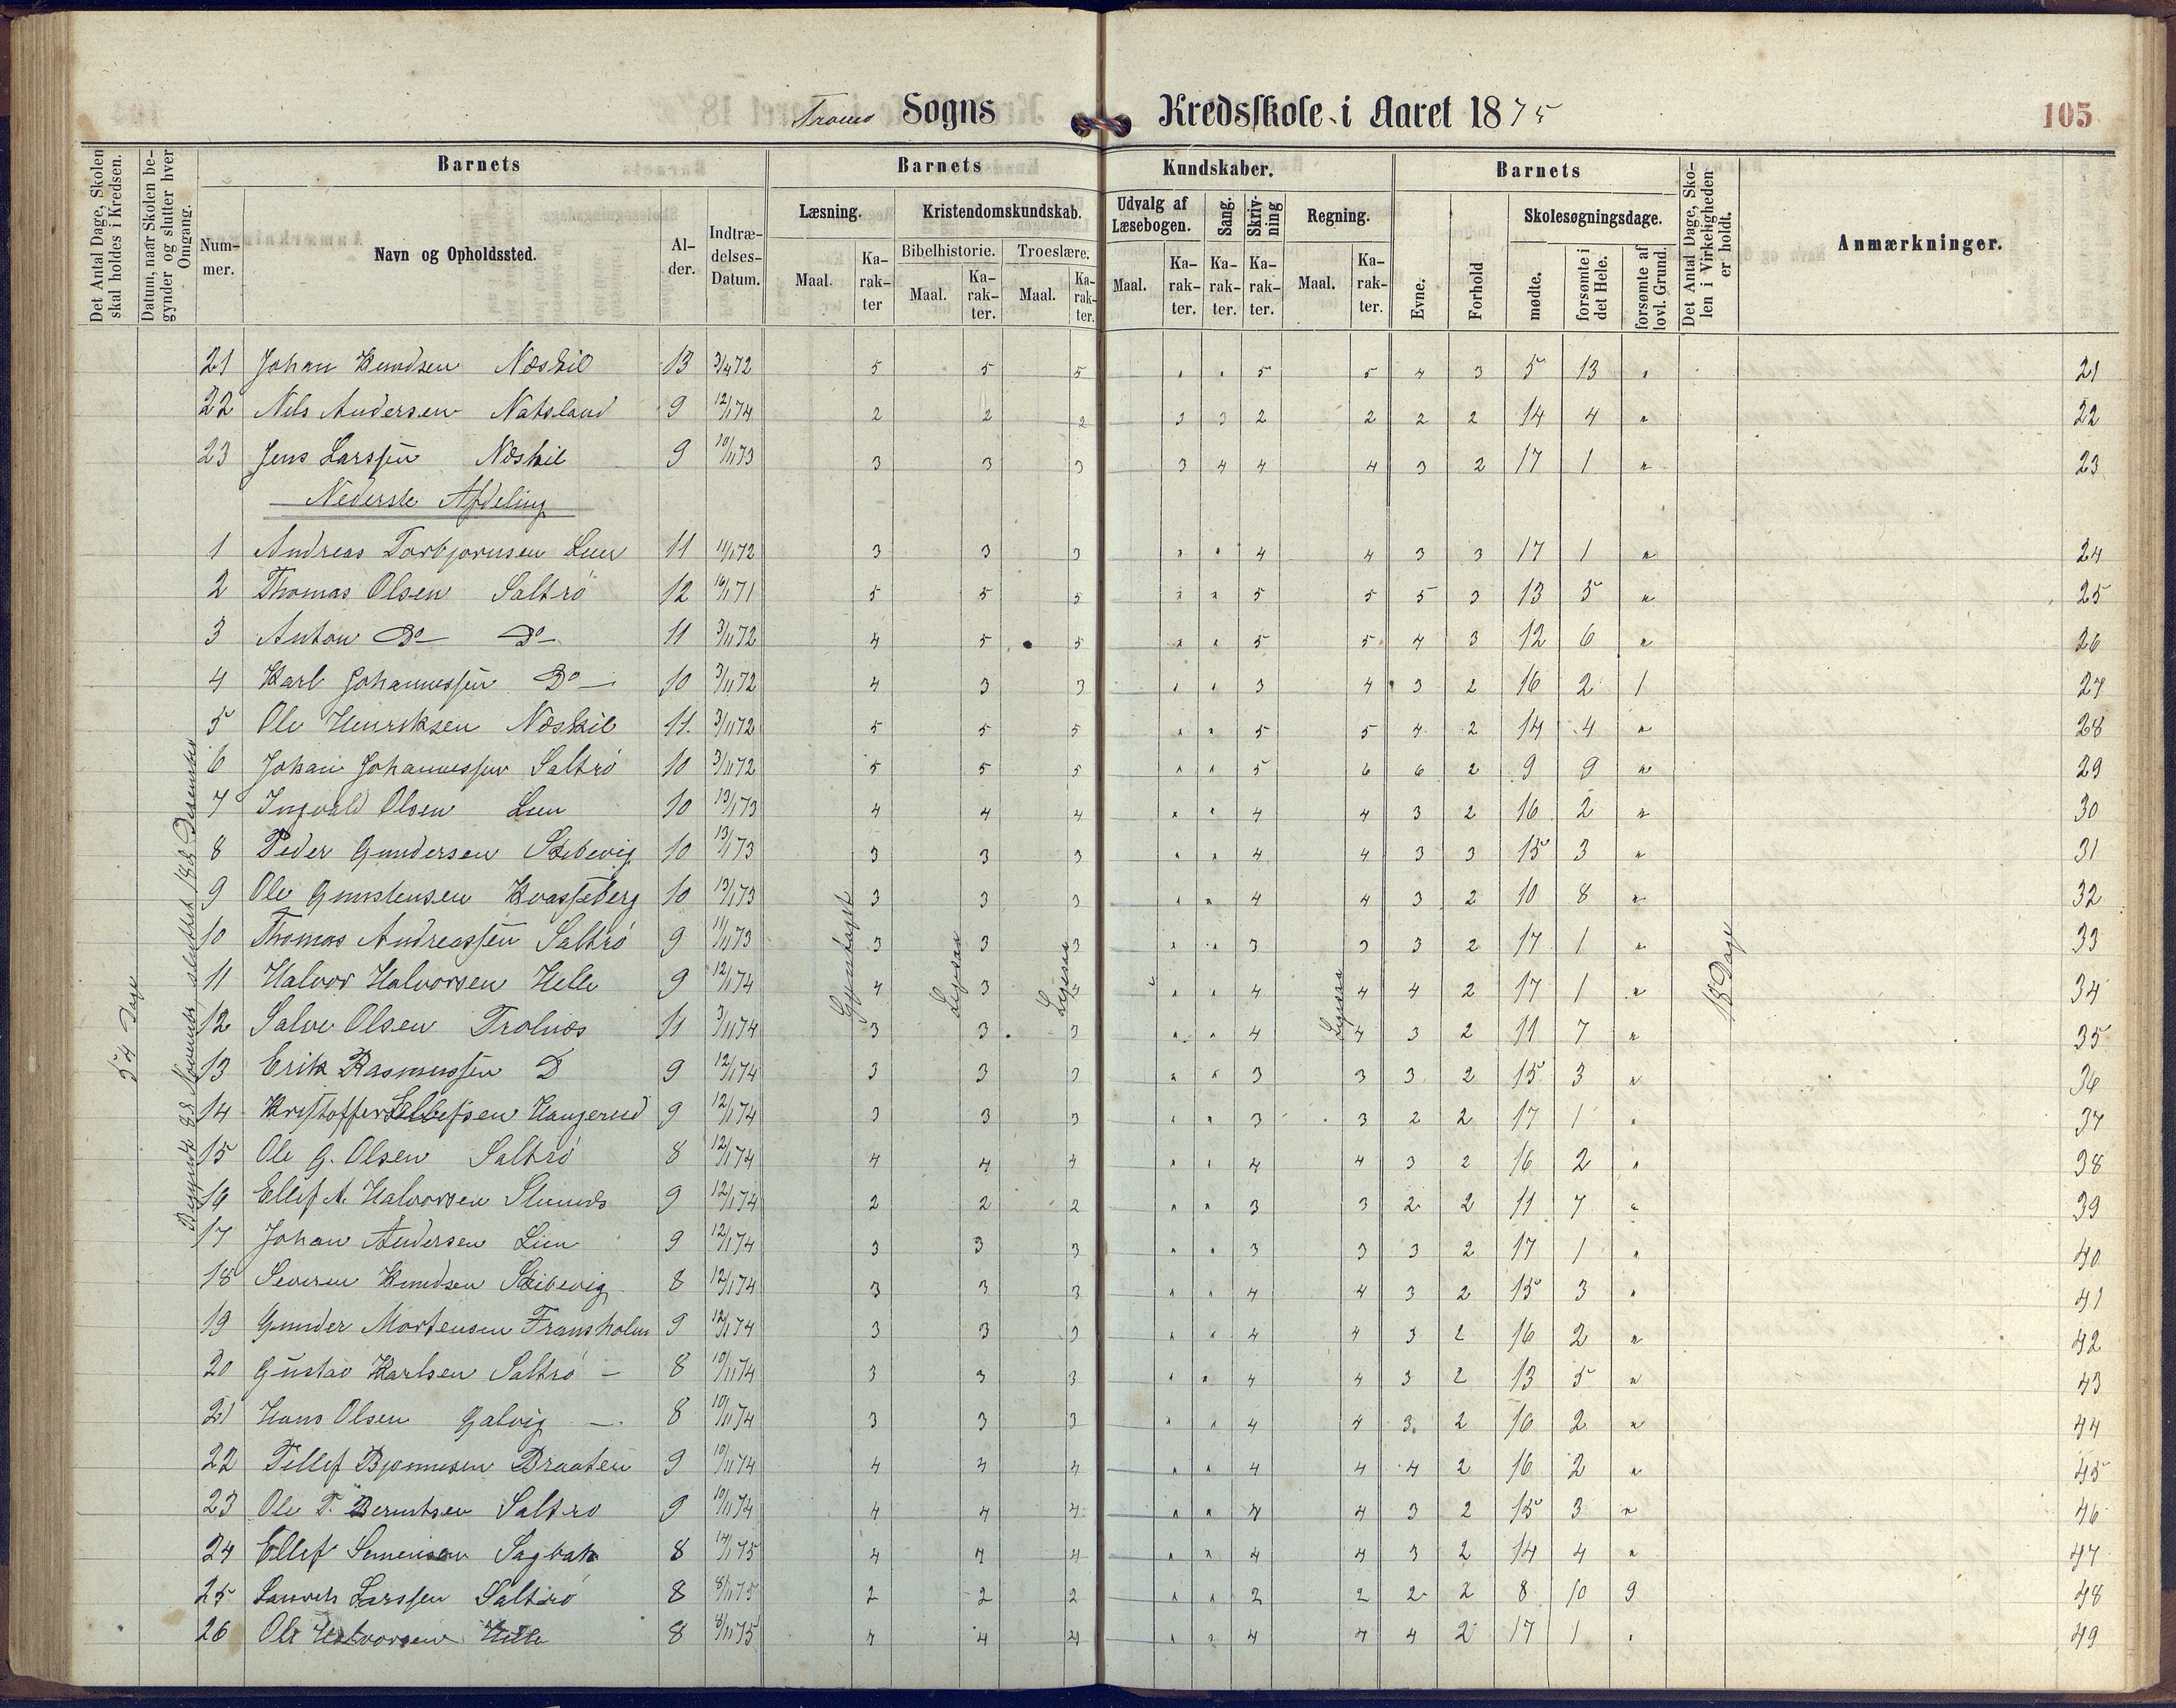 Tromø Sogns Kredsskole i Aaret 1875 105
Det Antal Dage, Skolen skal holdes i Kredsen.
Datum, naar Skolen begynder og slutter hver Omgang.
Barnets Barnets Kundskaber. Barnets
Nummer. Navn og Opholdssted. Alder. Indtrædelses-Datum.
Læsning. Kristendomskundskab. Udvalg af Læsebogen. Sang. Skrivning Regning. Skolesøgningsdage.
Bibelhistorie. Troeslære.
Maal. Karakter Maal. Karakter. Maal. Karakter. Maal. Karakter. Karakter. Karakter. Maal. Karakter. Evne. Forhold mødte. forsømte i det Hele. forsømte af lovl. Grund.
Det Antal Dage, Skolen i Virkeligheden er holdt.
Anmærkninger.
54 Dage
Begyndt 23 November, sluttet 18de Desember
Gjentaget Ligesaa Ligesaa Ligesaa
18 Dage
21 Johan Knudsen Næskil 13 3/4 72 5 5 5 " " 5 5 4 3 5 13 " 21
22 Nils Andersen Natsland 9 12/1 74 2 2 2 3 3 2 2 2 2 14 4 " 22
23 Jens Larssen Næskil 9 10/11 73 3 3 3 3 4 4 4 3 2 17 1 " 23
Nederste Afdeling
1 Andreas Torbjornsen Lien 11 11/1 72 3 3 3 " " 4 4 3 3 17 1 " 24
2 Thomas Olsen Saltrö 12 16/1 71 5 5 5 " " 5 5 5 3 13 5 " 25
3 Anton Do Do 11 3/11 72 4 5 5 " " 5 5 4 3 12 6 " 26
4 Karl Johannessen Do 10 3/11 72 4 3 3 " " 3 4 3 2 16 2 1 27
5 Ole Henriksen Næskil 11 3/11 72 5 5 5 " " 5 5 4 2 14 4 " 28
6 Johan Johannessen Saltrö 10 3/11 72 5 5 5 " " 5 6 6 2 9 9 " 29
7 Ingvald Olsen Lien 10 13/1 73 4 4 4 " " 4 4 3 2 16 2 " 30
8 Peder Gundersen Skibevig 10 13/1 73 3 3 3 " " 4 4 3 3 15 3 " 31
9 Ole Gunstensen Kvasteberg 10 13/1 73 3 3 3 " " 4 4 3 2 10 8 " 32
10 Thomas Andreassen Saltrö 9 11/11 73 3 3 3 " " 3 3 3 2 17 1 " 33
11 Halvor Halvorsen Helle 9 12/1 74 4 3 4 " " 4 4 4 2 17 1 " 34
12 Salve Olsen Trolnæs 11 3/11 74 3 3 3 " " 4 4 3 2 11 7 " 35
13 Erik Rasmussen D 9 12/1 74 3 3 3 " " 3 3 3 2 15 3 " 36
14 Kristoffer Ellefsen Haugerud 9 12/1 74 3 3 3 " " 3 3 2 2 17 1 " 37
15 Ole G. Olsen Saltrö 8 12/1 74 4 4 4 " " 4 4 3 2 16 2 " 38
16 Ellef A. Halvorsen 9 12/1 74 2 2 2 " " 3 3 2 2 11 7 " 39
17 Johan Andersen Lien 9 12/1 74 3 3 3 " " 3 3 3 2 17 1 " 40
18 Severin Knudsen Skibevig 8 12/1 74 3 3 3 " " 4 4 3 2 15 3 " 41
19 Gunder Mortensen Fransholm 9 12/1 74 3 3 3 " " 4 4 3 2 16 2 " 42
20 Gustav Karlsen Saltrö - 8 10/11 74 3 3 3 " " 4 4 3 2 13 5 " 43
21 Hans Olsen Galvig - 8 10/11 74 3 3 3 " " 4 4 3 2 16 2 " 44
22 Tellef Bjonnesen Braaten 9 10/11 74 4 4 4 " " 4 4 4 2 16 2 " 45
23 Ole T. Berntsen Saltro 9 10/11 74 4 4 4 " " 4 4 3 2 15 3 " 46
24 Ellef Semensen Sagbak 8 14/1 75 4 4 4 " " 4 4 3 2 14 4 " 47
25 Larssen Saltrö 8 8/11 75 2 2 2 " " 2 2 2 2 8 10 9 48
26 Ole Halvorsen Helle 8 8/11 75 4 4 4 " " 4 4 4 2 17 1 " 49